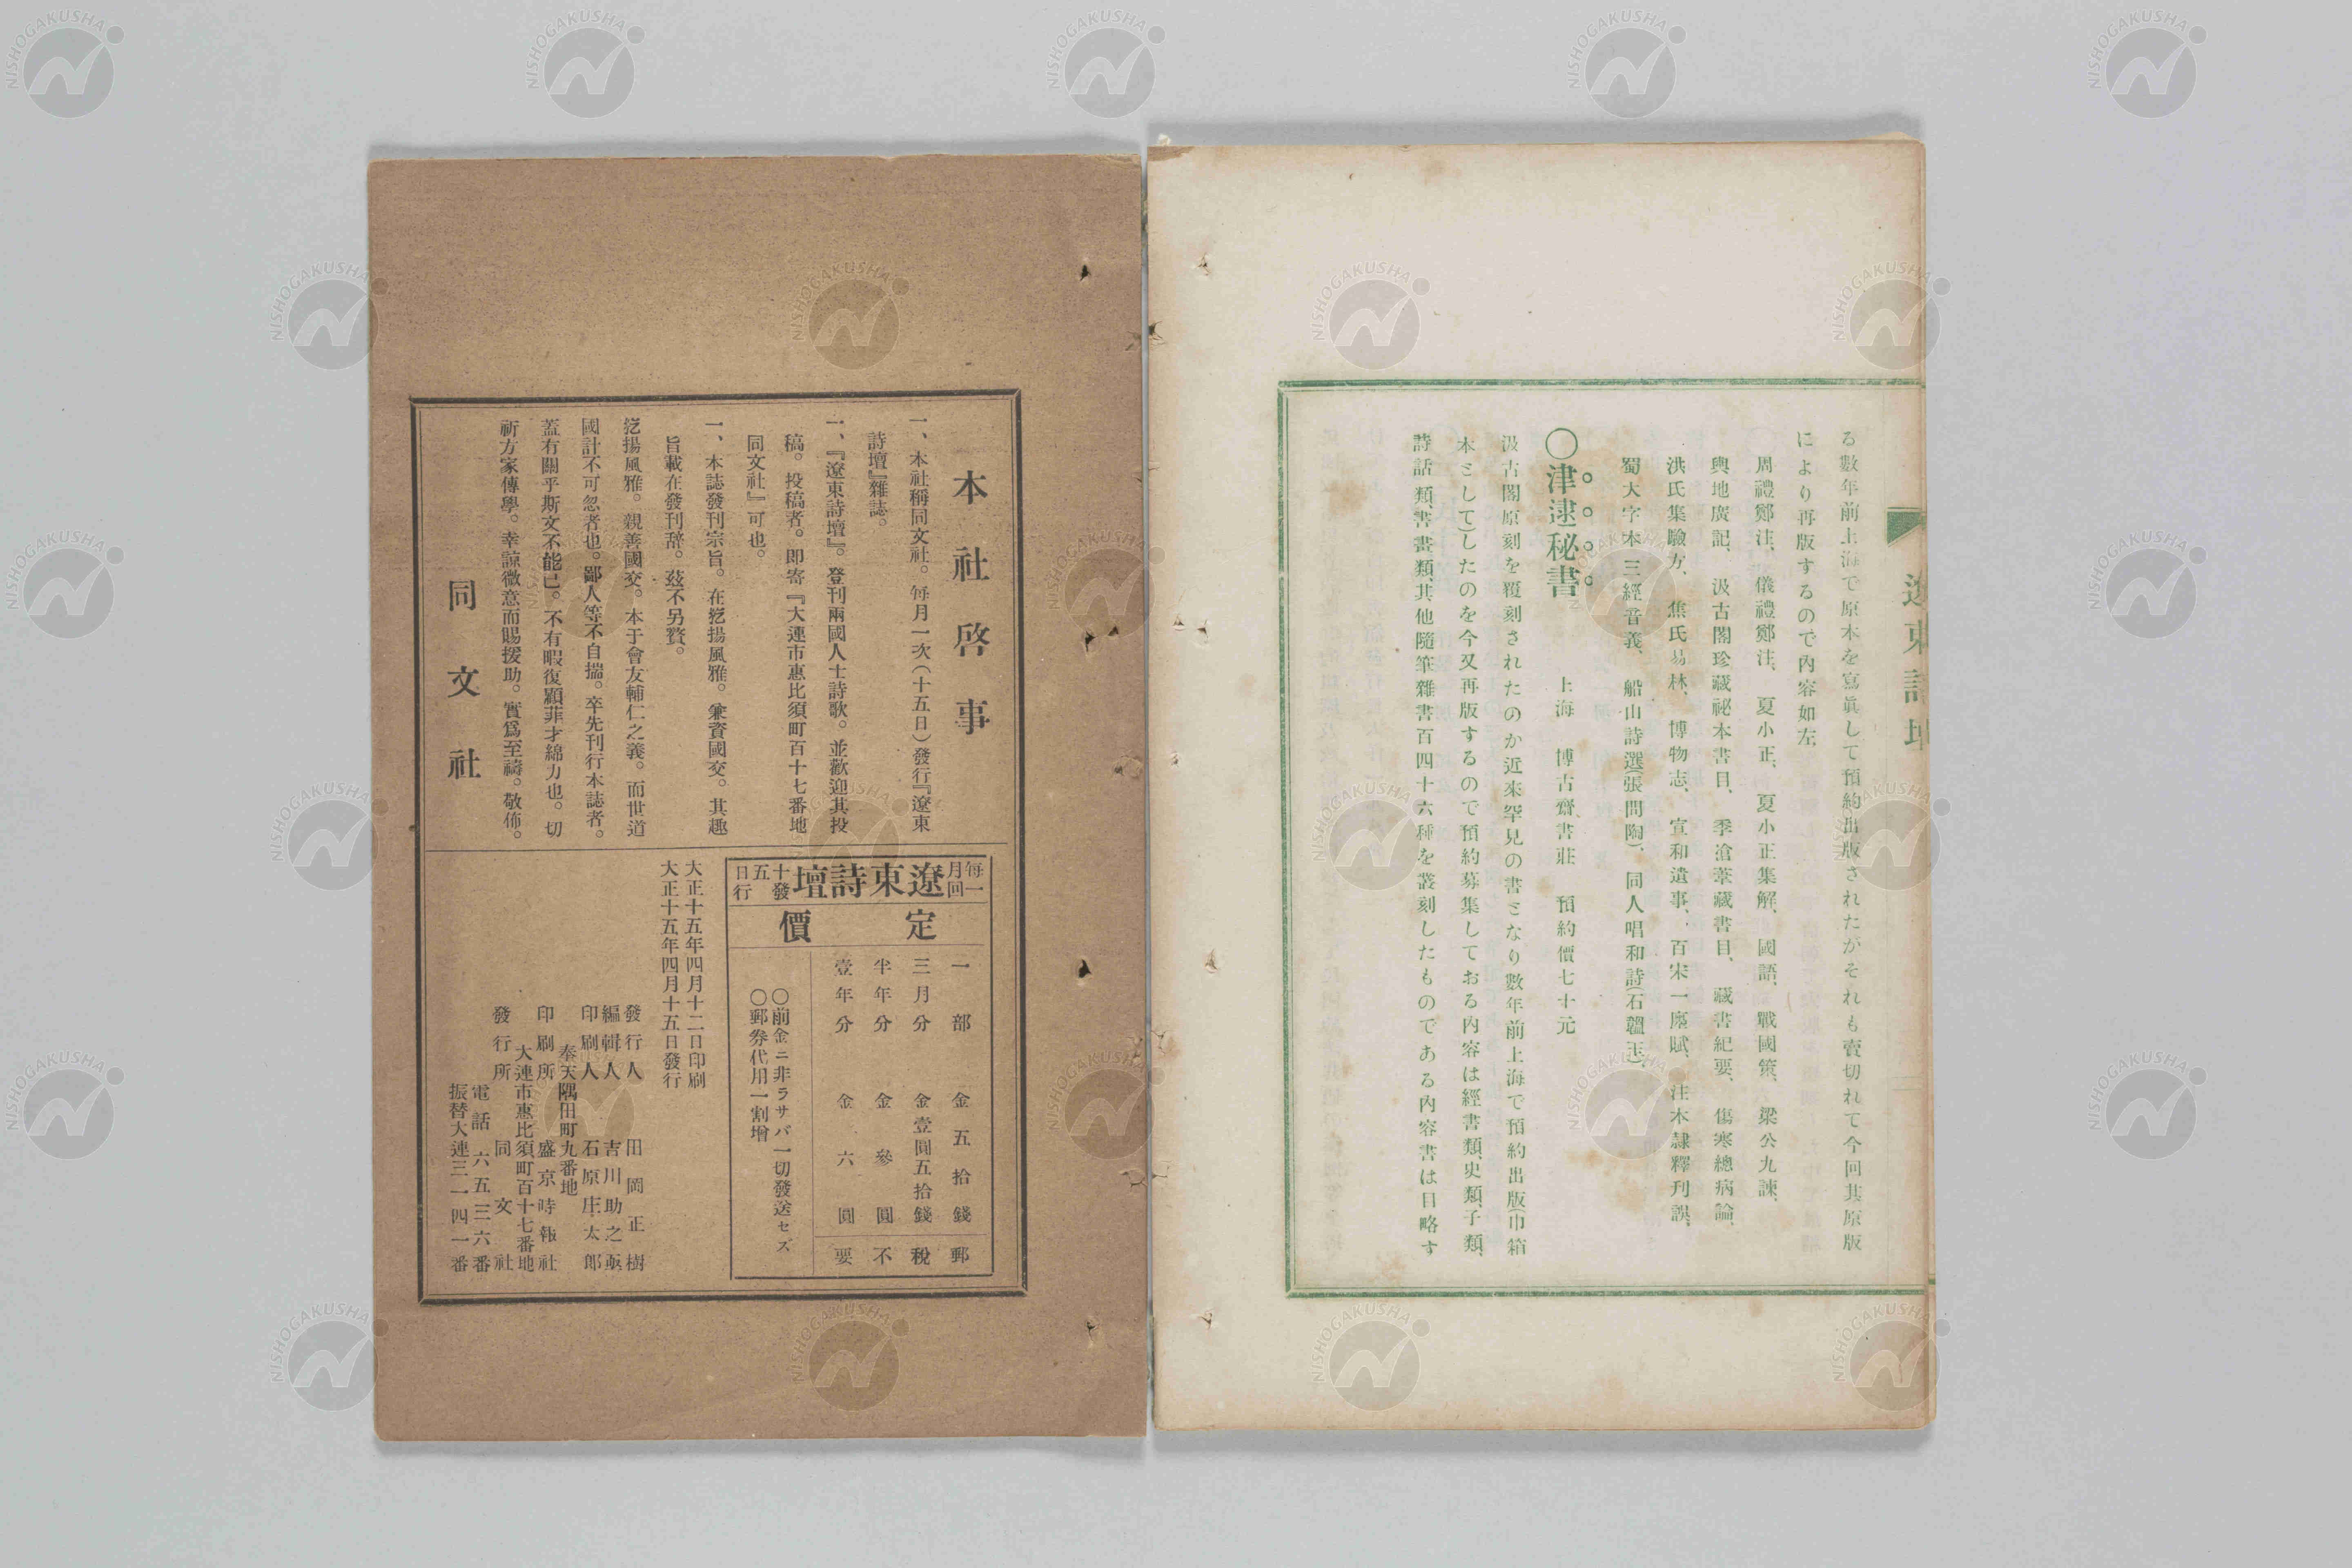 る數年前上海で原本を寫眞して預約出版されたがそれも賣切れて今回其原版
により再版するので內容如左
周禮鄭注、儀禮鄭注、夏小正、夏小正集解、國語、戰國策、梁公九諫、
輿地廣記、汲古閣珍藏祕本書目、季滄葦藏書目、藏書紀要、傷寒總病論、
洪氏集驗方、焦氏易林、博物志、宣和遺事、百宋一廛賦、汪本隸釋刊誤、
蜀大字本三經音義、船山詩選(張問陶)、同人唱和詩(石韞玉)、
〇津逮秘書 上海 博古齋書莊 預約價七十元
汲古閣原刻を覆刻されたのか近來罕見の書となり數年前上海で預約出版(巾箱
本として)したのを今又再版するので預約募集しておる內容は經書類、史類、子類、
詩話類、書畫類、其他隨筆雜書百四十六種を叢刻したものである內容書は目略す
遼東詩壇
本社啓事
一、本社稱同文社。每月一次(十五日)發行『遼東
詩壇』雜誌。
一、『遼東詩壇』。登刊兩國人士詩歌。並歡迎其投
稿。投稿者。即寄『大連市惠比須町百十七番地
同文社』可也。
一、本誌發刊宗旨。在挖揚風雅。兼資國交。其趣
旨載在發刊辞。茲不另贅。
挖揚風雅。親善國交。本于會友輔仁之義。而世道
國計不可忽者也。鄙人等不自揣。卒先刊行本誌者。
蓋有關乎斯文不能已。不有暇復顧菲才綿力也。切
祈方家傳學。幸諒微意而賜援助。實爲至禱。敬佈。
同文社
每月一回 遼東詩壇 十五日發行
定價
一部 金五拾錢 郵
三月分 金壹圓五拾錢 稅
半年分 金參圓 不
壹年分 金六圓 要
〇前金ニ非ラサバ一切發送セズ
〇郵券代用一割增
大正十五年四月十二日印刷
大正十五年四月十五日發行
發行人 田岡正樹
編輯人 吉川助之亟
印刷人 石原庄太郎
奉天隅田町九番地
印刷所 盛京時報社
大連市惠比須町百十七番地
發行所 同文社
電話六五三六番
振替大連三一四一番
NISHOGAKUSHA